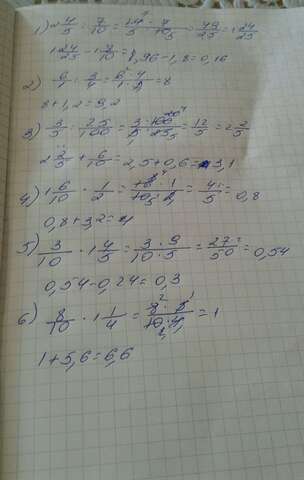 1) 2 4/5 · 7/10 = 14 · 7/5 · 10 5 = 49/25 = 1 24/25
1 24/25 - 1 8/10 = 1,96 - 1,8 = 0,16
2) 6/1 : 3/4 = 6 · 4/1 · 3 = 8
8 + 1,2 = 9,2
3) 3/5 : 25/100 = 3 · 100 20 4/5 · 25 5 = 12/5 = 2 2/5
2 2/5 + 6/10 = 2,5 + 0,6 = 3,1
4) 1 6/10 · 1/2 = 16 · 1/10 5 · 2 = 4/5 = 0,8
0,8 + 3,2 = 4
5) 3/10 · 1 4/5 = 3 · 9/10 · 5 = 27/50 = 0,54
0,54 - 0,24 = 0,3
6) 8/10 · 1 1/4 = 8 2 · 5 1/10 2 · 4 1 = 1
1 + 5,6 = 6,6